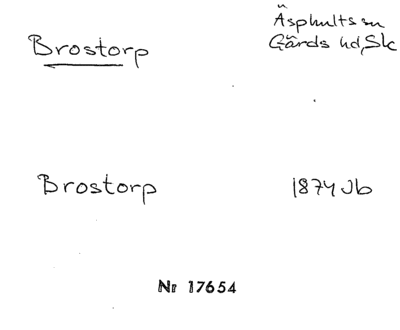 Brostorp
Äsphults sn
Gärds hd, Sk
Brostorp
1874 Jb
Nr 17654